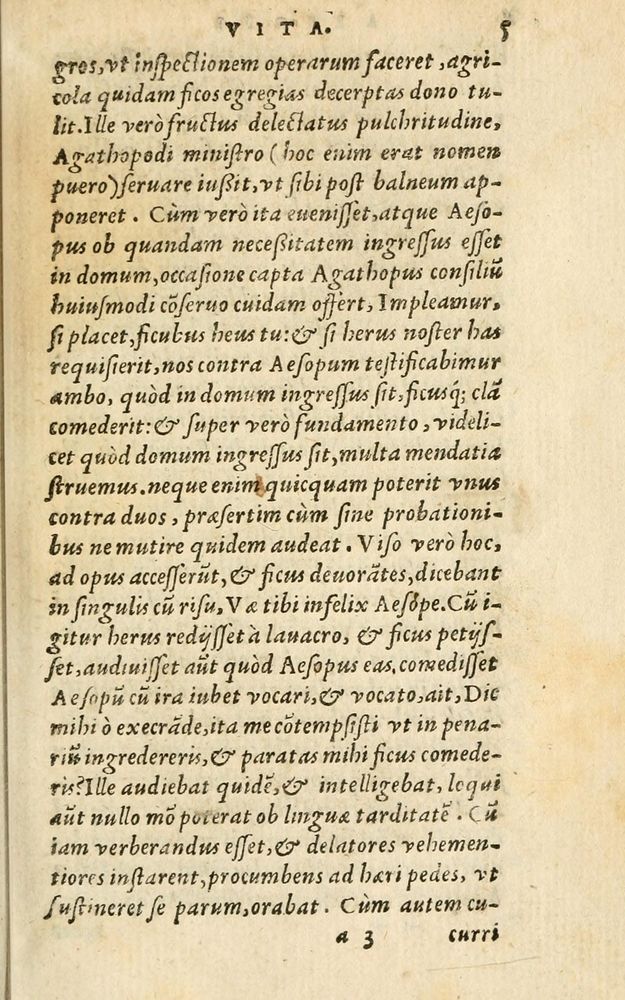 VITA. 5
gros, vt inſpectionem operarum faceret, agri-
cola quidam ficos egregias decerptas dono tu-
lit. Ille verò fructus delectatus pulchritudine,
Agathopodi miniſtro (hoc enim erat nomen
puero) ſeruare iußit, vt ſibi poſt balneum ap-
poneret. Cùm verò ita eueniſſet, atque Aeſo-
pus ob quandam neceßitatem ingreſſus eſſet
in domum, occaſione capta Agathopus conſiliũ
huiuſmodi cõſeruo cuidam offert, Impleamur,
ſi placet, ficubus heus tu: & ſi herus noſter has
requiſierit, nos contra Aeſopum teſtificabimur
ambo, quòd in domum ingreſſus ſit, ficusq́; clã
comederit: & ſuper verò fundamento, videli-
cet quòd domum ingreſſus ſit, multa mendatia
ſtruemus. neque enim quicquam poterit vnus
contra duos, præſertim cùm ſine probationi-
bus ne mutire quidem audeat. Viſo verò hoc,
ad opus acceſſerũt, & ficus deuorãtes, dicebant
in ſingulis cũ riſu, Væ tibi infelix Aeſope. Cũ i-
gitur herus redijſſet à lauacro, & ficus petijſ-
ſet, audiuiſſet aũt quòd Aeſopus eas comediſſet
Aeſopũ cũ ira iubet vocari, & vocato, ait, Dic
mihi ò execrãde, ita me cõtempſiſti vt in pena-
riũ ingredereris, & paratas mihi ficus comede-
ris? Ille audiebat quidẽ, & intelligebat, loqui
aũt nullo mõ poterat ob linguæ tarditatẽ. Cũ
iam verberandus eſſet, & delatores vehemen-
tiores inſtarent, procumbens ad hæri pedes, vt
ſuſtineret ſe parum, orabat. Cùm autem cu-
a 3 curri